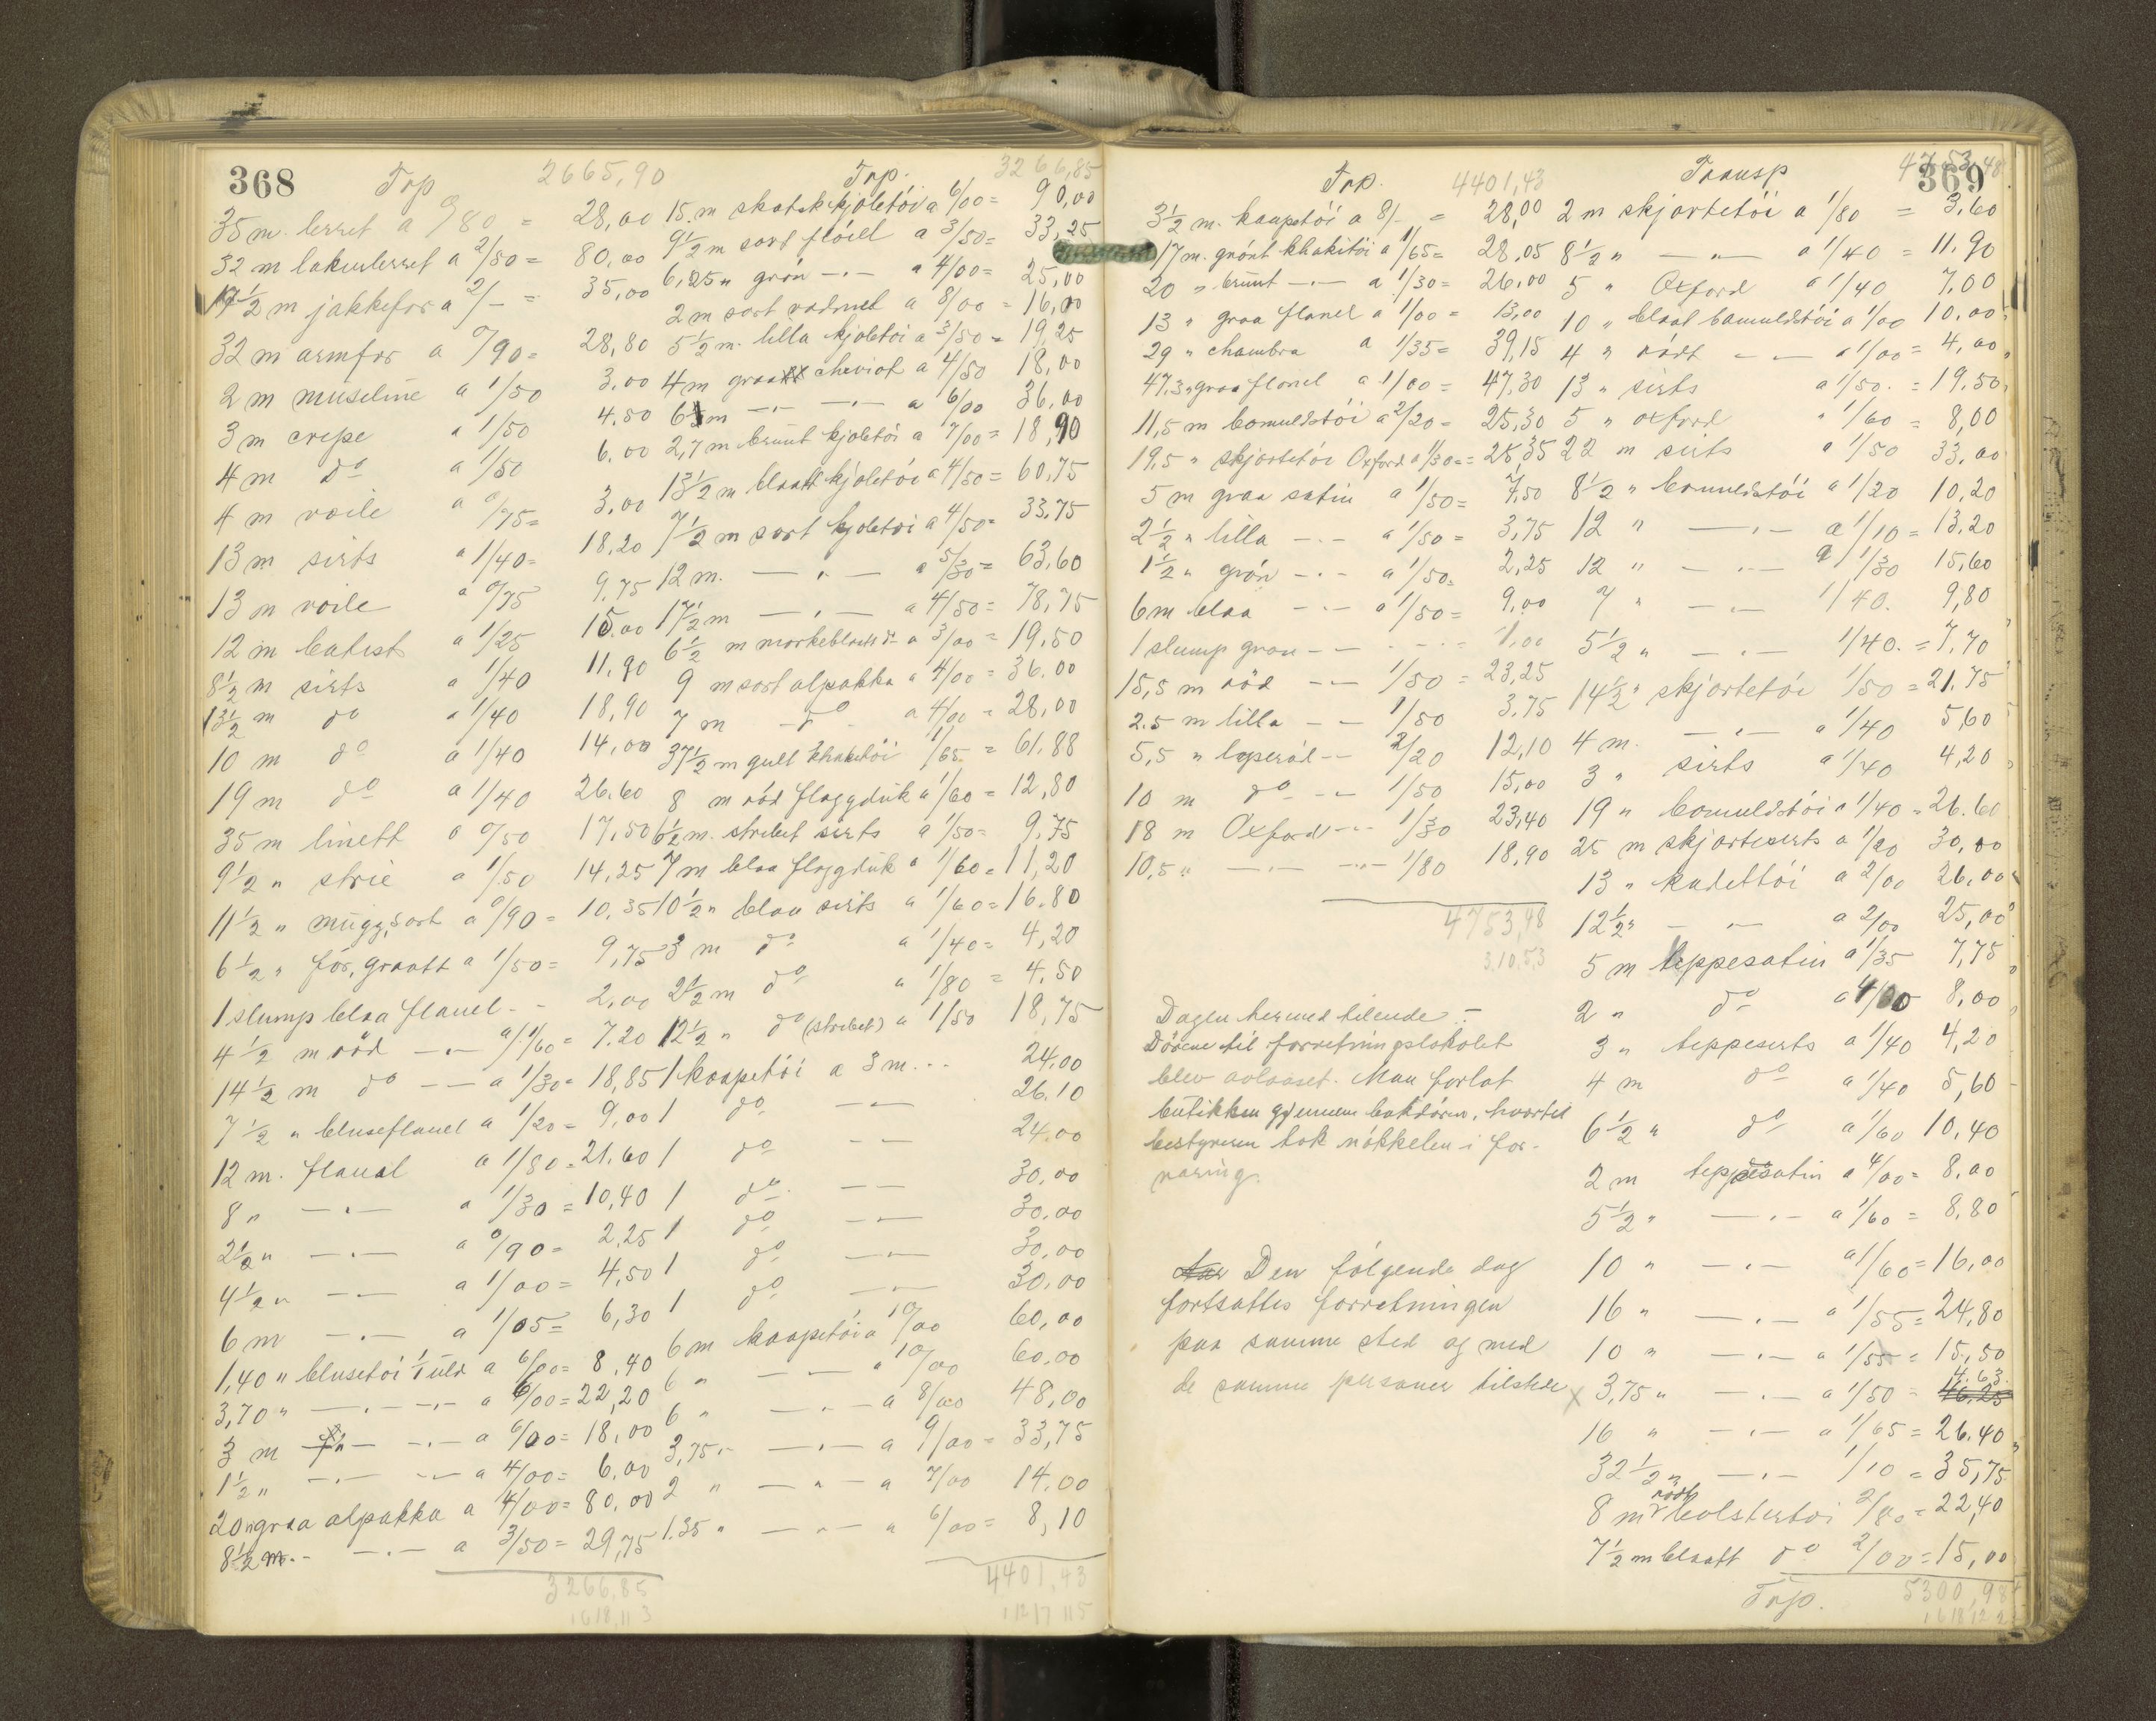 368
Trp 2665,90
35 m. lerret a 0/80 = 28,00
32 m lakenlerret a 2/50 = 80,00
17 1/2 m jakkefor a 2/- = 35,00
32 m armfor a 0/90 = 28,80
2 m museline a 1/50 3.00
3 m crepe a 1/50 4.50
4 m do a 1/50 6.00
4 m voile a 0/75 = 3,00
13 m sirts a 1/40 = 18,20
13 m voile a 0/75 9,75
12 m batist a 1/25 15.00
8 1/2 m sirts a 1/40 11.90
13 1/2 m do a 1/40 18,90
10 m do a 1/40 14,00
19 m do a 1/40 26.60
35 m linett a 0/50 17,50
9 1/2 " strie a 1/50 14,25
11 1/2 " mugg, sort a 0/90 = 10,35
6 1/2 " for, graatt a 1/50 = 9,75
1 slump blaa flanel - 2,00
4 1/2 m röd -"- a 1/60 = 7.20
14 1/2 m do -- a 1/30 = 18,85
7 1/2 " bluseflanel a 1/20 = 9,00
12 m. flanel a 1/80 = 21.60
8 " -"- a 1/30 = 10,40
2 1/2 " -"- a 0/90 = 2,25
4 1/2 " -"- a 1/00 = 4,50
6 m -"- a 1/05 = 6,30
1,40 " blusetöi 1/1 uld a 6/00 = 8,40
3,70 " -"- -"- a 6/00 = 22,20
3 m -"- -"- a 6/00 = 18,00
1 1/2 " -"- -"- a 4/00 = 6,00
20 " graa alpakka a 4/00 = 80,00
8 1/2 m. -"- a 3/50 = 29,75
3266,85
Trp. 3266,85
15 m skotsk kjoletöi a 6/00 = 90,00
9 1/2 m sort flöiel a 3/50 = 33,25
6,25 " grön -"- a 4/00 = 25,00
2 m sort vadmel a 8/00 = 16,00
5 1/2 m. lilla kjoletöi a 3/50 = 19,25
4 m graa cheviot a 4/50 18,00
6 m -"- -"- a 6/00 36,00
2,7 m brunt kjoletöi a 7/00 = 18,90
13 1/2 m blaat kjoletöi a 4/50 = 60,75
7 1/2 m sort kjoletöi a 4/50 = 33.75
12 m. -"- a 5/30 = 63,60
17 1/2 m -"- a 4/50 = 78,75
6 1/2 m mörkeblaat do a 3/00 = 19,50
9 m sort alpakka a 4/00 = 36.00
7 m do a 4/00 = 28,00
37 1/2 m gult khakitöi 1/65 = 61.88
8 m röd flaggduk a 1/60 = 12,80
6 1/2 m. stribet sirts a 1/50 = 9.75
7 m blaa flaggduk a 1/60 = 11,20
10 1/2 " blaa sirts a 1/60 = 16.80
3 m do a 1/40 = 4,20
2 1/2 m do a 1/80 = 4.50
12 1/2 " do (stribet) a 1/50 18,75
1 kaapetöi a 3 m... 24.00
1 do -"- 26.10
1 do -- 24.00
1 do -- 30.00
1 do -"- 30.00
1 do -"- 30.00
1 do -"- 30.00
6 m kaapetöi a 10/00 60,00
6 " -"- a 10/00 60.00
6 " -"- a 8/00 48,00
3,75 " -"- a 9/00 = 33,75
2 " -"- a 7/00 14.00
1.35 " -"- a 6/00 = 8,10
4401,43
369
Trp. 4401,43
3 1/2 m. kaapetöi a 8/- = 28,00
17 m. grönt khakitöi a 1/65 = 28,05
20 " brunt -"- a 1/30 = 26,00
13 " graa flanel a 1/00 = 13,00
29 " chambra a 1/35 = 39,15
47,3 " graa flanel a 1/00 = 47,30
11,5 m bomuldstöi a 2/20 = 25,30
19,5 " skjortetöi Oxford a 1/30 = 25,35
5 m graa satin a 1/50 = 7,50
2 1/2 " lilla -"- a 1/50 = 3,75
1 1/2 " grön -"- a 1/50 = 2,25
6 m blaa -"- a 1/50 = 9,00
1 slump graa -- 1,00
15,5 m röd -- 1/50 = 23,25
2.5 m lilla -- 1/50 3,75
5,5 " teperöd -- 2/20 12,10
10 m do -- 1/50 15,00
18 m Oxford -- 1/30 23,40
10,5 " -"- -"- 1/80 18,90
4753,48
Dagen hermed tilende.-
Dörene til forretningslokalet
blev avlaaset. Man forlot
butikken gjennem bakdören, hvortil
bestyreren tok nökkelen i for-
varing.
Den fölgende dag
fortsattes forretningen
paa samme sted og med
de samme personer tilstede
Transp 4753,48
2 m skjortetöi a 1/80 = 3.60
8 1/2 " -"- a 1/40 = 11.90
5 " Oxford a 1/40 7,00
10 " blaat bomuldstöi a 1/00 10,00
4 " rödt -- a 1/00 = 4,00
13 " sirts a 1/50. = 19,50
5 " oxford " 1/60 = 8,00
22 m sirts a 1/50 33,00
8 1/2 " bomuldstöi a 1/20 10,20
12 " -"- a 1/10 = 13,20
12 " -"- a 1/30 15,60
7 " -"- 1/40. 9,80
5 1/2 " -"- 1/40. = 7,70
14 1/2 " skjortetöi 1/50 = 21.75
4 m. -"- a 1/40 5,60
3 " sirts a 1/40 4,20
19 " bomuldstöi a 1/40 = 26.60
25 m skjortesirts a 1/20 30,00
13 " kadettöi a 2/00 26,00
12 1/2 " -"- a 2/00 25,00
5 m teppesatin a 1/35 7,75
2 " do a 4/00 8,00
3 " teppesirts a 1/40 4,20
4 m do a 1/40 5,60
6 1/2 " do a 1/60 10,40
2 m teppesatin a 4/00 = 8,00
5 1/2 " -"- a 1/60 = 8,80
10 " -"- a 1/60 = 16,00
16 " -"- a 1/55 = 24,80
10 " -"- a 1/55 = 15,50
x 3,75 " -"- a 1/50 = 46,25 4.63
16 " -"- a 1/65 = 26.40
32 1/2 " -"- 1/10 = 35,75
8 m rödt bolstertöi 2/80 = 22,40
7 1/2 m blaatt do 2/00 = 15,00
Trp. 5300,98